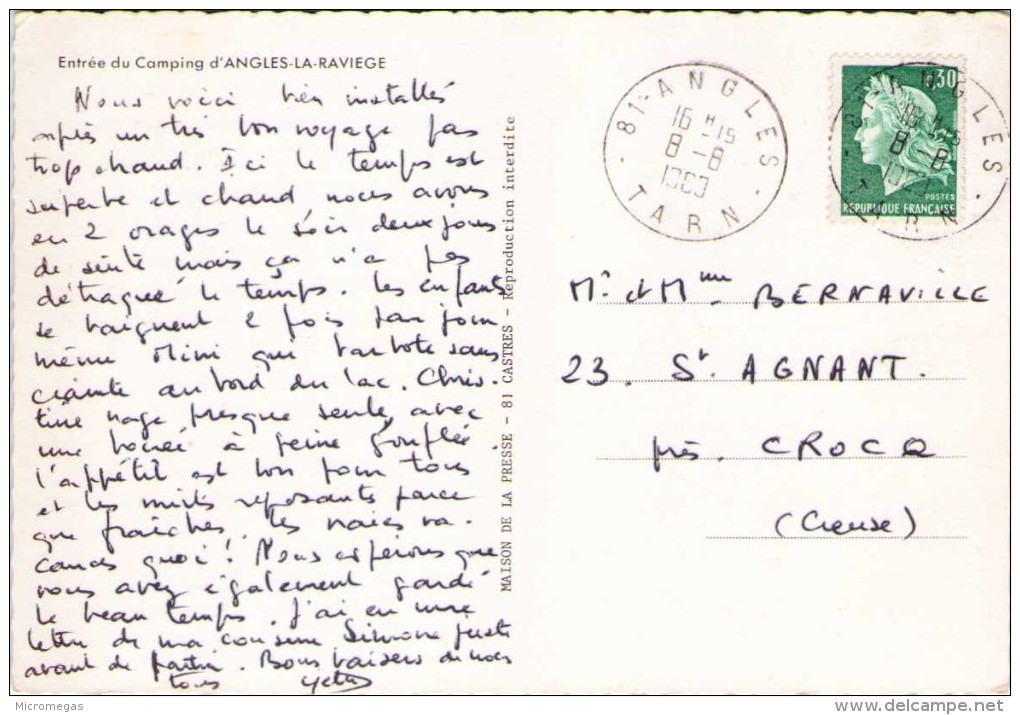 Entrée du Camping d'ANGLES-LA-RAVIEGE
Nous voici bien installés
après un très bon voyage pas
trop chaud. Ici le temps est
superbe et chaud nous avons
eu 2 orages le soir deux jours
de suite mais ça n'a pas
détraqué le temps. les enfants
se baignent 2 fois par jour
même Mimi qui barbote sans
crainte au bord du lac. Chris-
tine nage presque seule, avec
une bouée à peine gonflée
l'appétit est bon pour tous
et les nuits reposantes parce
que fraîches. les vraies va-
cances quoi! Nous espérons que
vous avez également gardé
le beau temps. J'ai eu une
lettre de ma cousine Simone juste
avant de partir. Bons baisers de nous
tous
MAISON DE LA PRESSE - 81 CASTRES - Reproduction interdite
81-ANGLES
16 H -15
8 -8
TARN
0.30
POSTES
REPUBLIQUE FRANÇAISE
81-ANGLES
16 H 15
8 -8
TARN
Mr et Mme BERNAVILLE
23. St AGNANT.
près. CROCQ
(Creuse)
Micromegas
delcampe.net